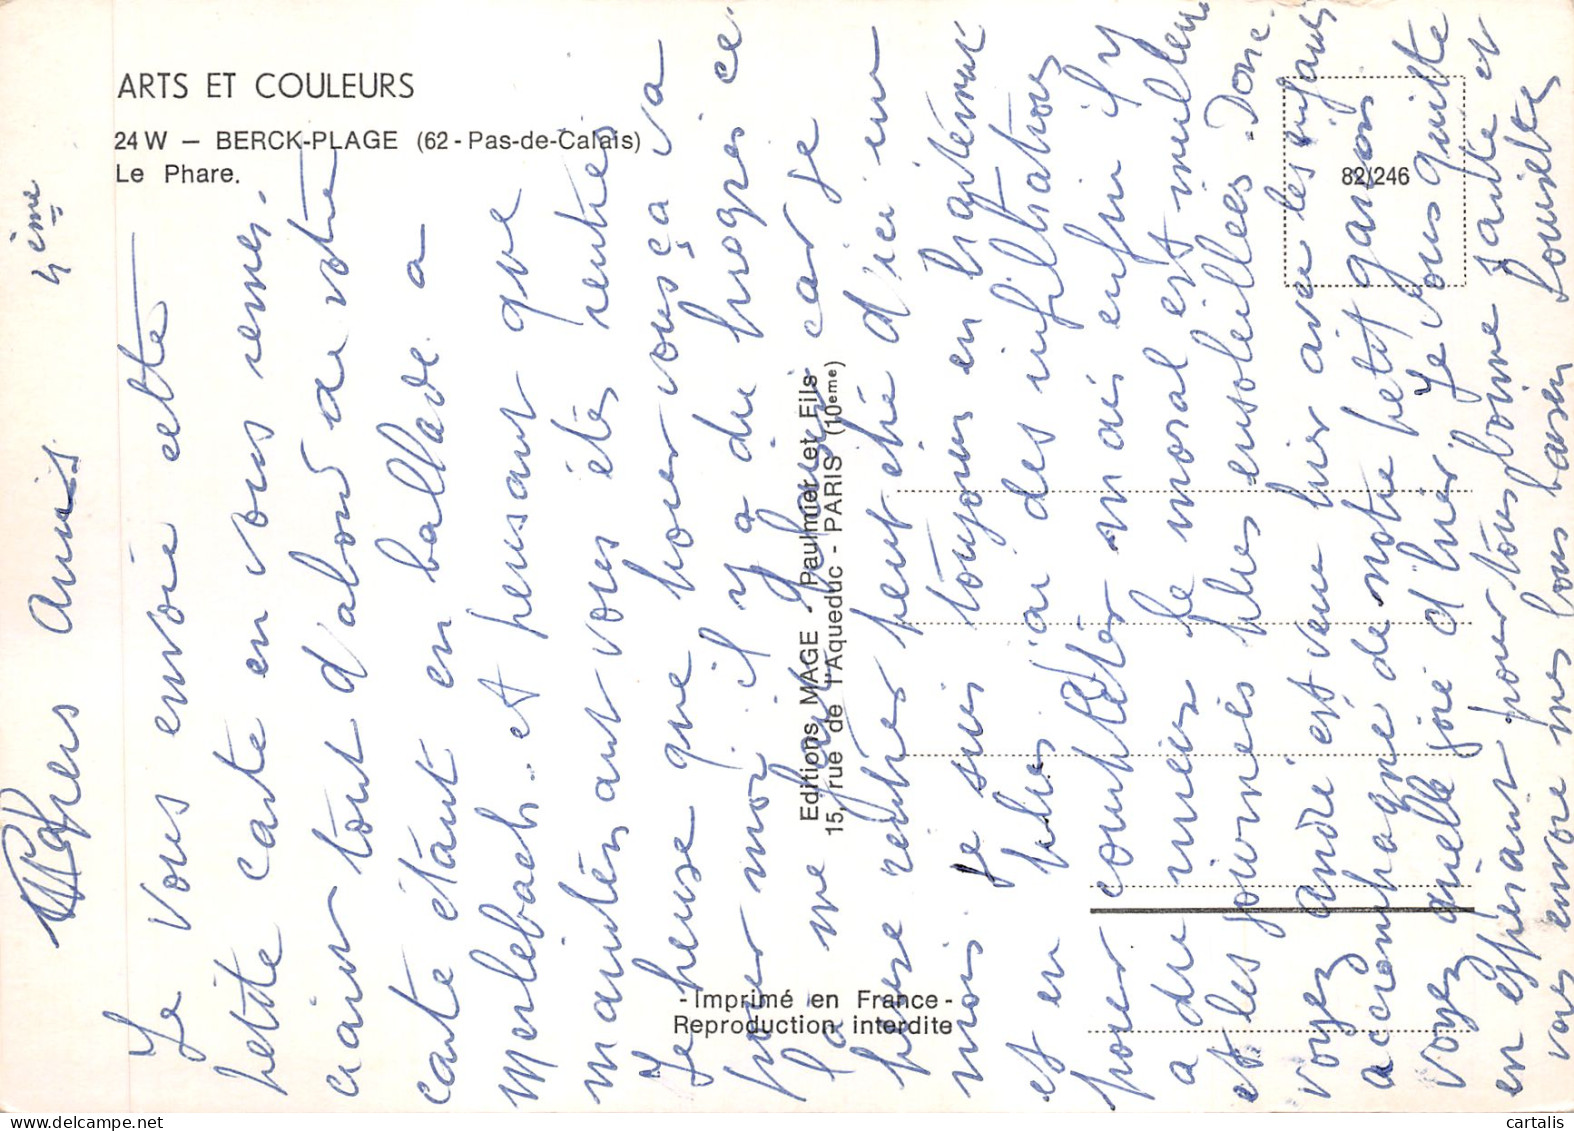 ARTS ET COULEURS
24 W – BERCK-PLAGE (62 - Pas-de-Calais)
Le Phare.
82/246
Editions MAGE - Paulmiet et Fils
15, rue de l'Aqueduc - PARIS (10eme)
- Imprimé en France -
Reproduction interdite
4ème
Chers Amis
Je vous envoie cette
petite carte en vous remer-
ciant tout d'abord de votre
carte étant en ballade a
Merlebach. et pensant que
maintenant vous étés rentrés
Je pense que pour vous ça va
pour moi il y a du progrès ce
la me car je
pense rentrer peut etre d'ici un
mois Je suis toujours en traitement
et en plus j'ai des infiltrations
pour compléter mais enfin il y
a du mieux le moral est meilleur
et les journées plus ensoleillées. Donc.
voyez André est venu hier avec les enfants
accompagné de notre petit garçon
voyez quelle joie d'hier. Je vous quitte
en espérant pour tous bonne santé et
vous envoie mes bons baisers Louisette
cartalis